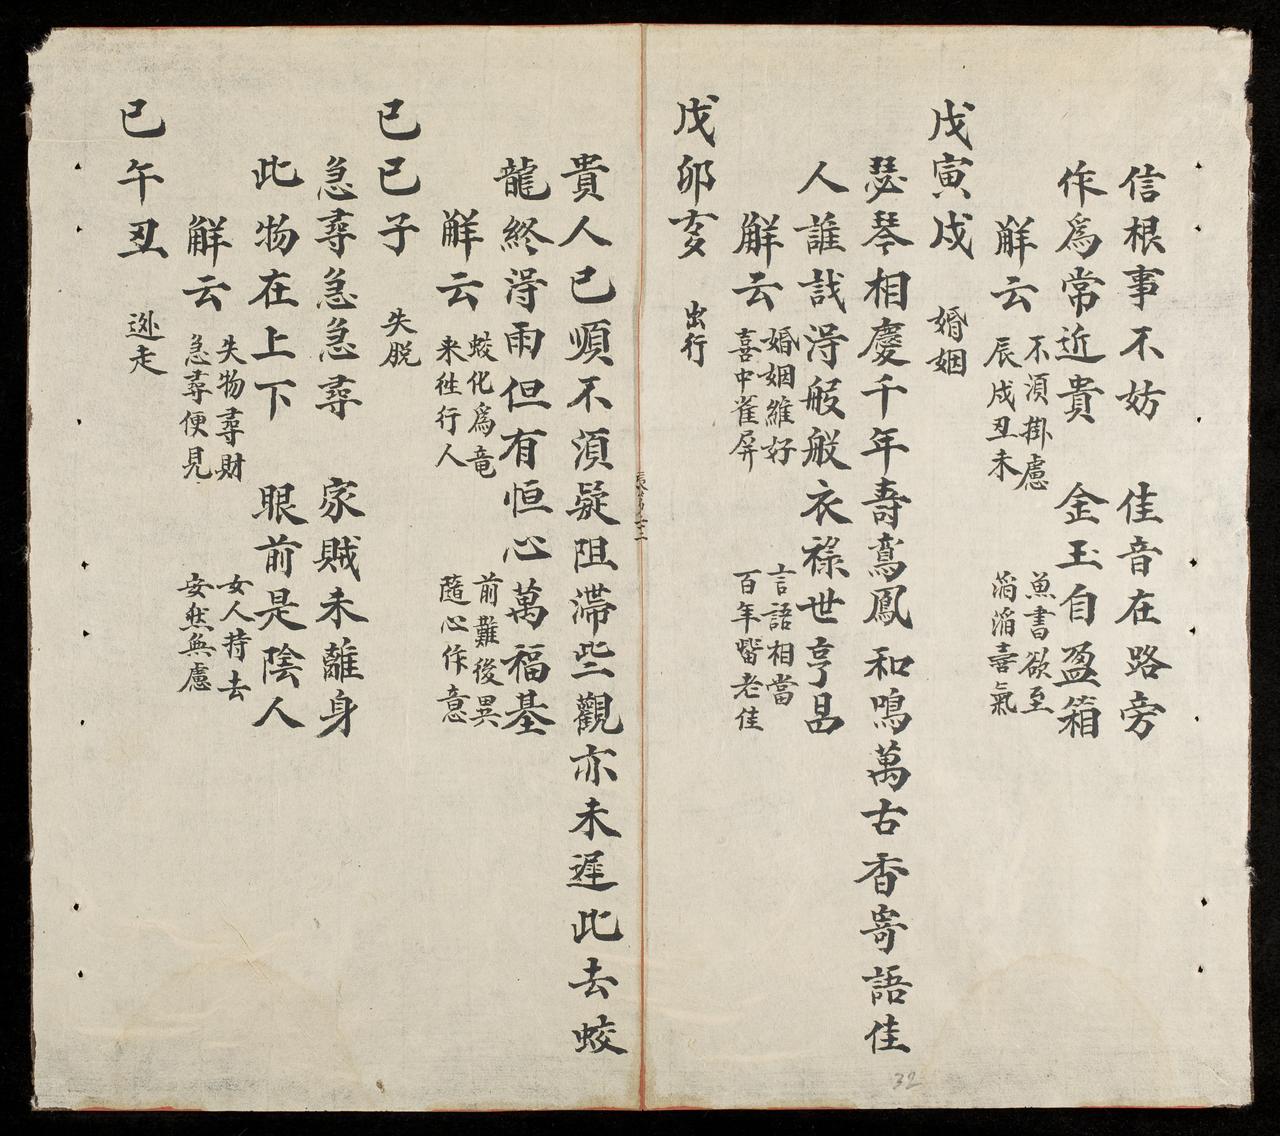 信根事不妨 佳音在路旁
作為常近貴 金玉自盈箱
解云 不湏掛慮 辰戌丑未 魚書欲至 滔滔喜氣
戊寅戌 婚姻
瑟琴相慶千年壽鸞鳳和鳴萬古香寄語佳
人誰戝淂般般衣祿世亨昌
解云 婚姻維好 喜中雀屏 言語相當 百年喈老佳
戊卯亥 出行
貴人已順不湏疑阻滯些觀亦未遲此去蛟
龍終淂雨但有恒心萬福基
解云 蛟化爲竜 来徃行人 前難後異 隨心作意
已巳子 失脱
急尋急急尋 家賊未離身
此物在上下 眼前是陰人
解云 失物尋財 急尋便見 女人持去 安然無慮
已午丑 迯走
32